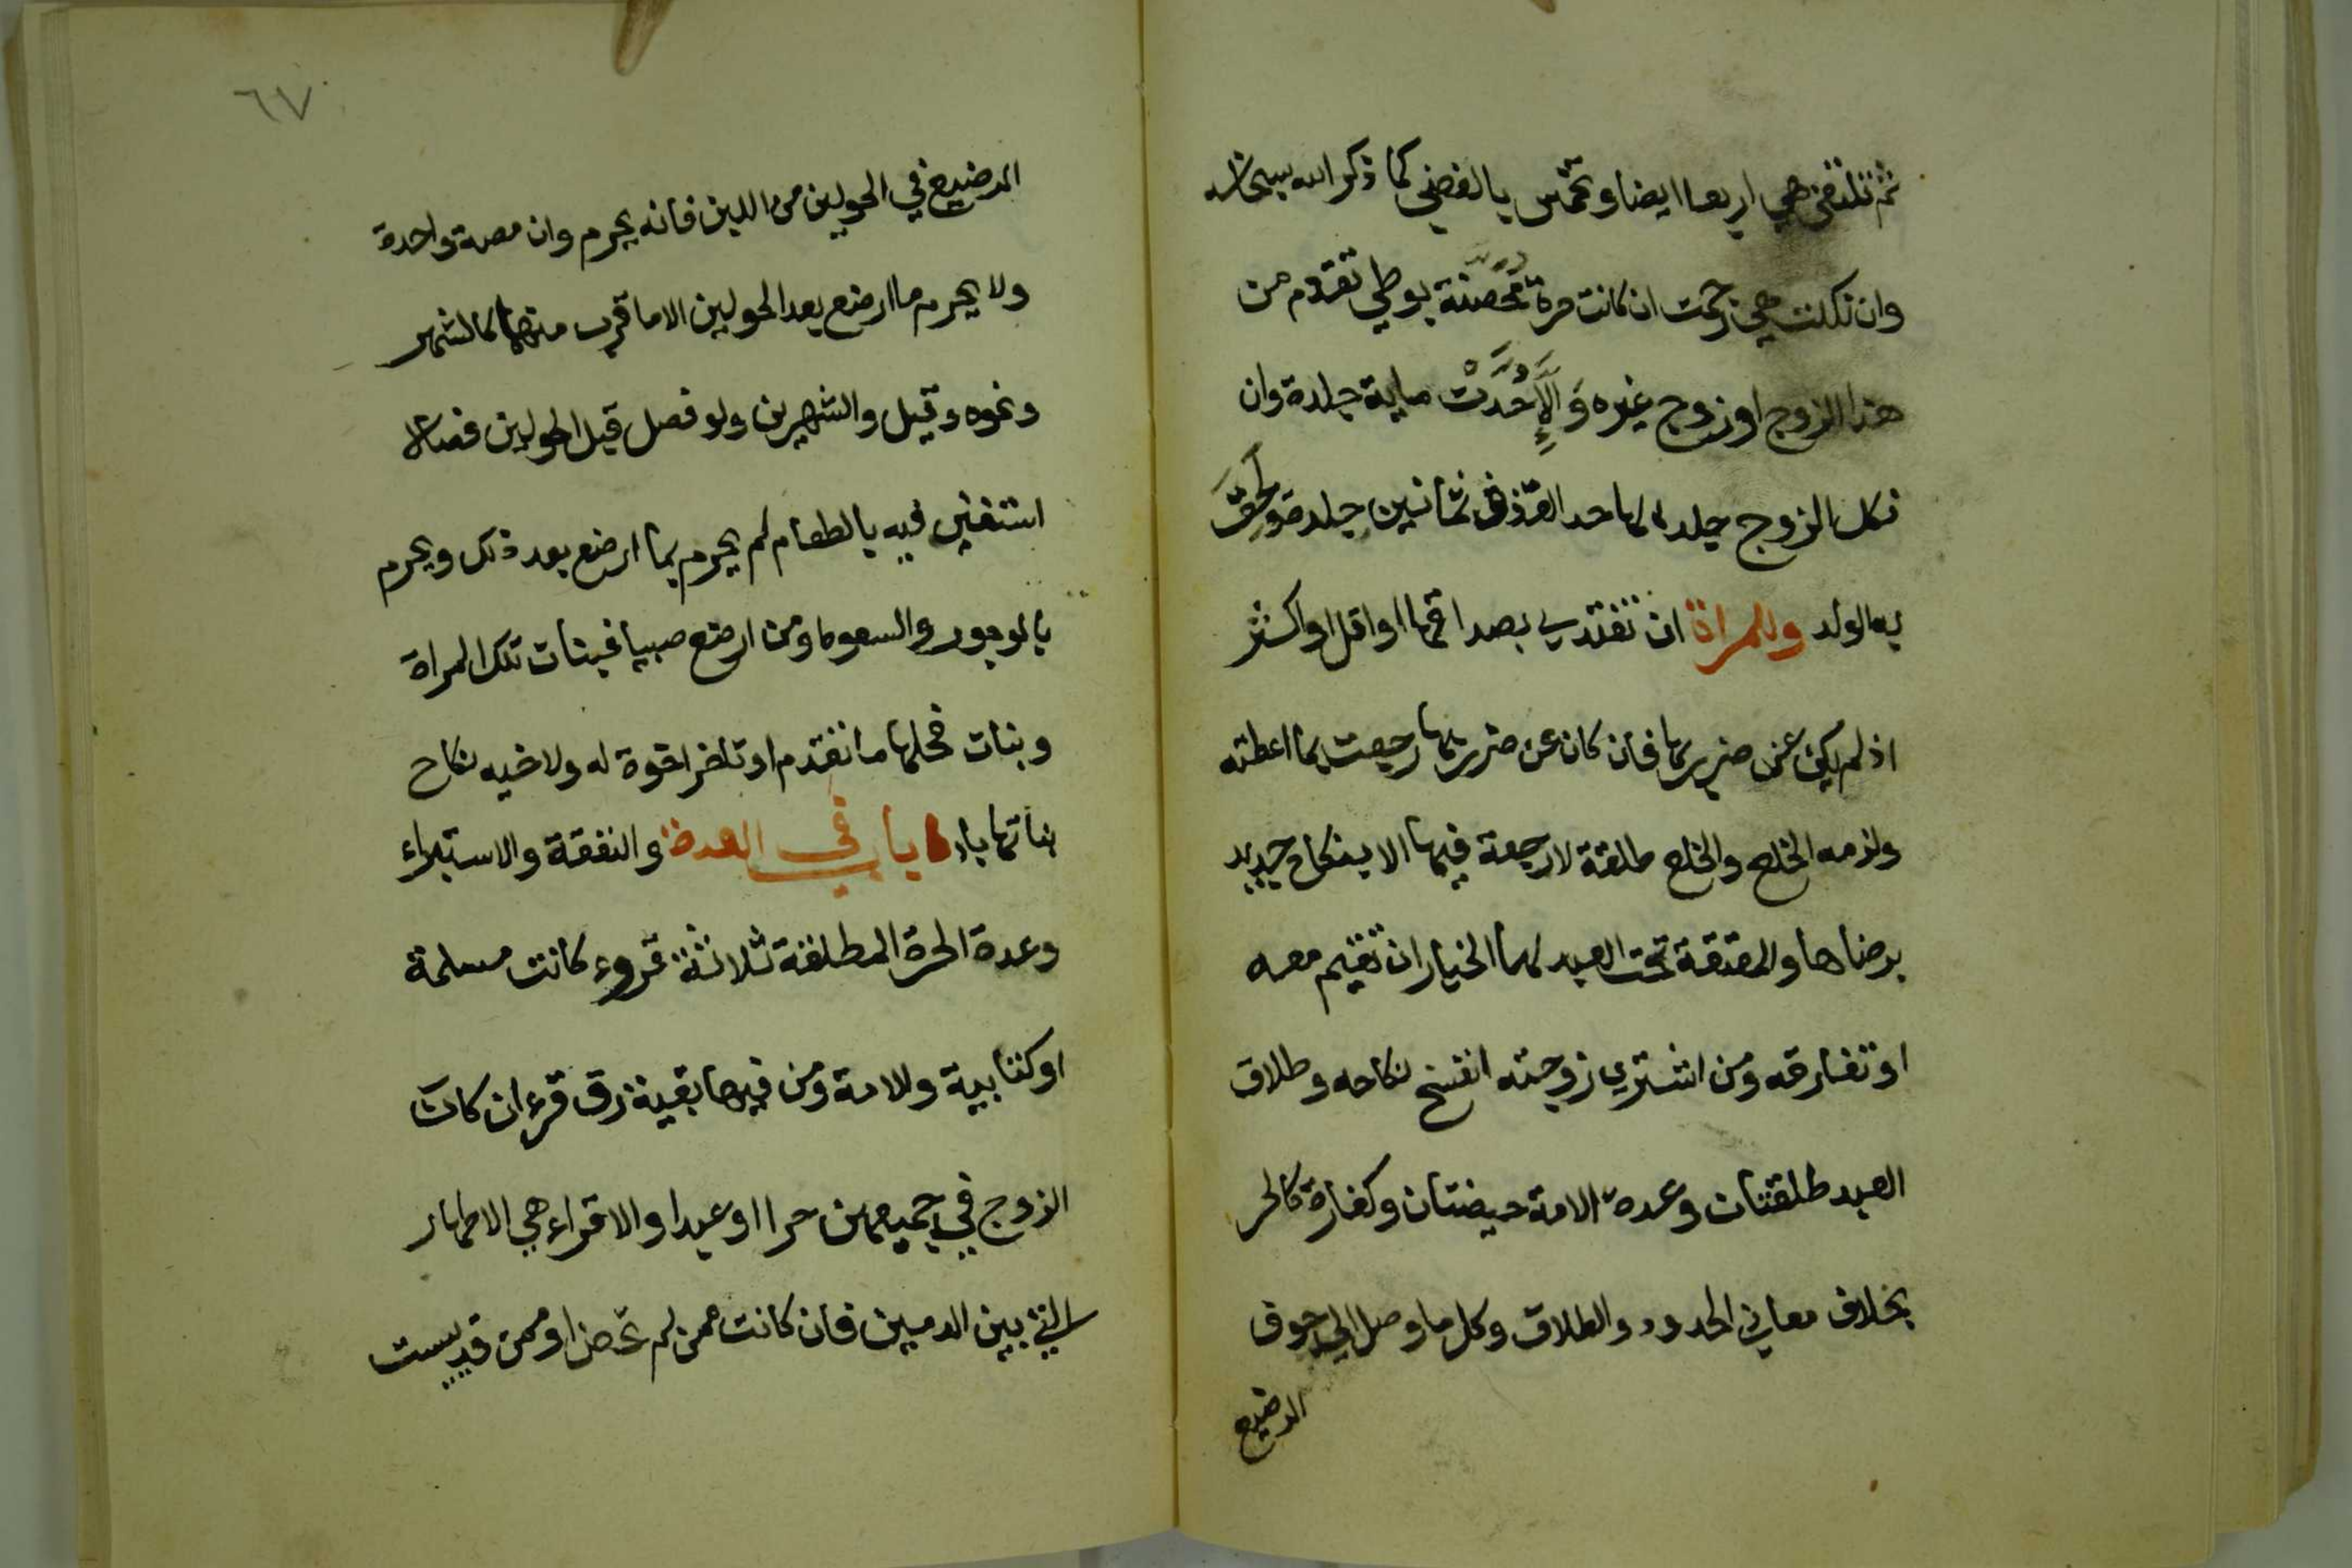 ثم تلتعن هي اربعا ايضا وتخمس بالغضب كما ذكر الله سبحانه
وان نكلت هي رجمت ان كانت حرة محصنة بوطي تقدم من
هذا الزوج او زوج غيره وَاِلَّا حُدَّتْ ماية جلدة وان
نكل الزوج جلد لها حد القذف ثمانين جلدة ولحق
به الولد وللمراة ان تفتدي بصداقها او اقل او اكثر
اذ لم يكن عن ضرر بها فان كان عن ضرر بها رجعت بما اعطته
ولزمه الخلع والخلع طلقة لا رجعة فيها الا بنكاح جديد
برضاها والمعتقة تحت العبد لها الخيار ان تقيم معه
او تفارقه ومن اشتري زوجته انفسخ نكاحه وطلاق
العبد طلقتان وعدة الامة حيضتان وكفارة كالحر
بخلاف معاني الحدود والطلاق وكل ما وصل الي جوف
الرضيع
٦٧
الرضيع في الحولين من اللبن فانه يحرم وان مصة واحدة
ولا يحرم ما ارضع بعد الحولين الا ما قرب منهما كالشهر
ونحوه وقيل والشهرين ولو فصل قبل الحولين فصالا
استغني فيه بالطعام لم يحرم بما ارضع بعد ذلك ويحرم
بالوجور والسعوط ومن ارضع صبيا فبنات تلك المراة
وبنات فحلها ما تقدم او تاخر اخوة له ولاخيه نكاح
بناتها باب في العدة والنفقة والاستبراء
وعدة الحرة المطلقة ثلاثة قروء كانت مسلمة
او كتابية وللامة ومن فيها بقية رق قرءان كان
الزوج في جميعهن حرا او عبدا والاقراء هي الاطهار
التي بين الدمين فان كانت ممن لم تحض او ممن قد يست